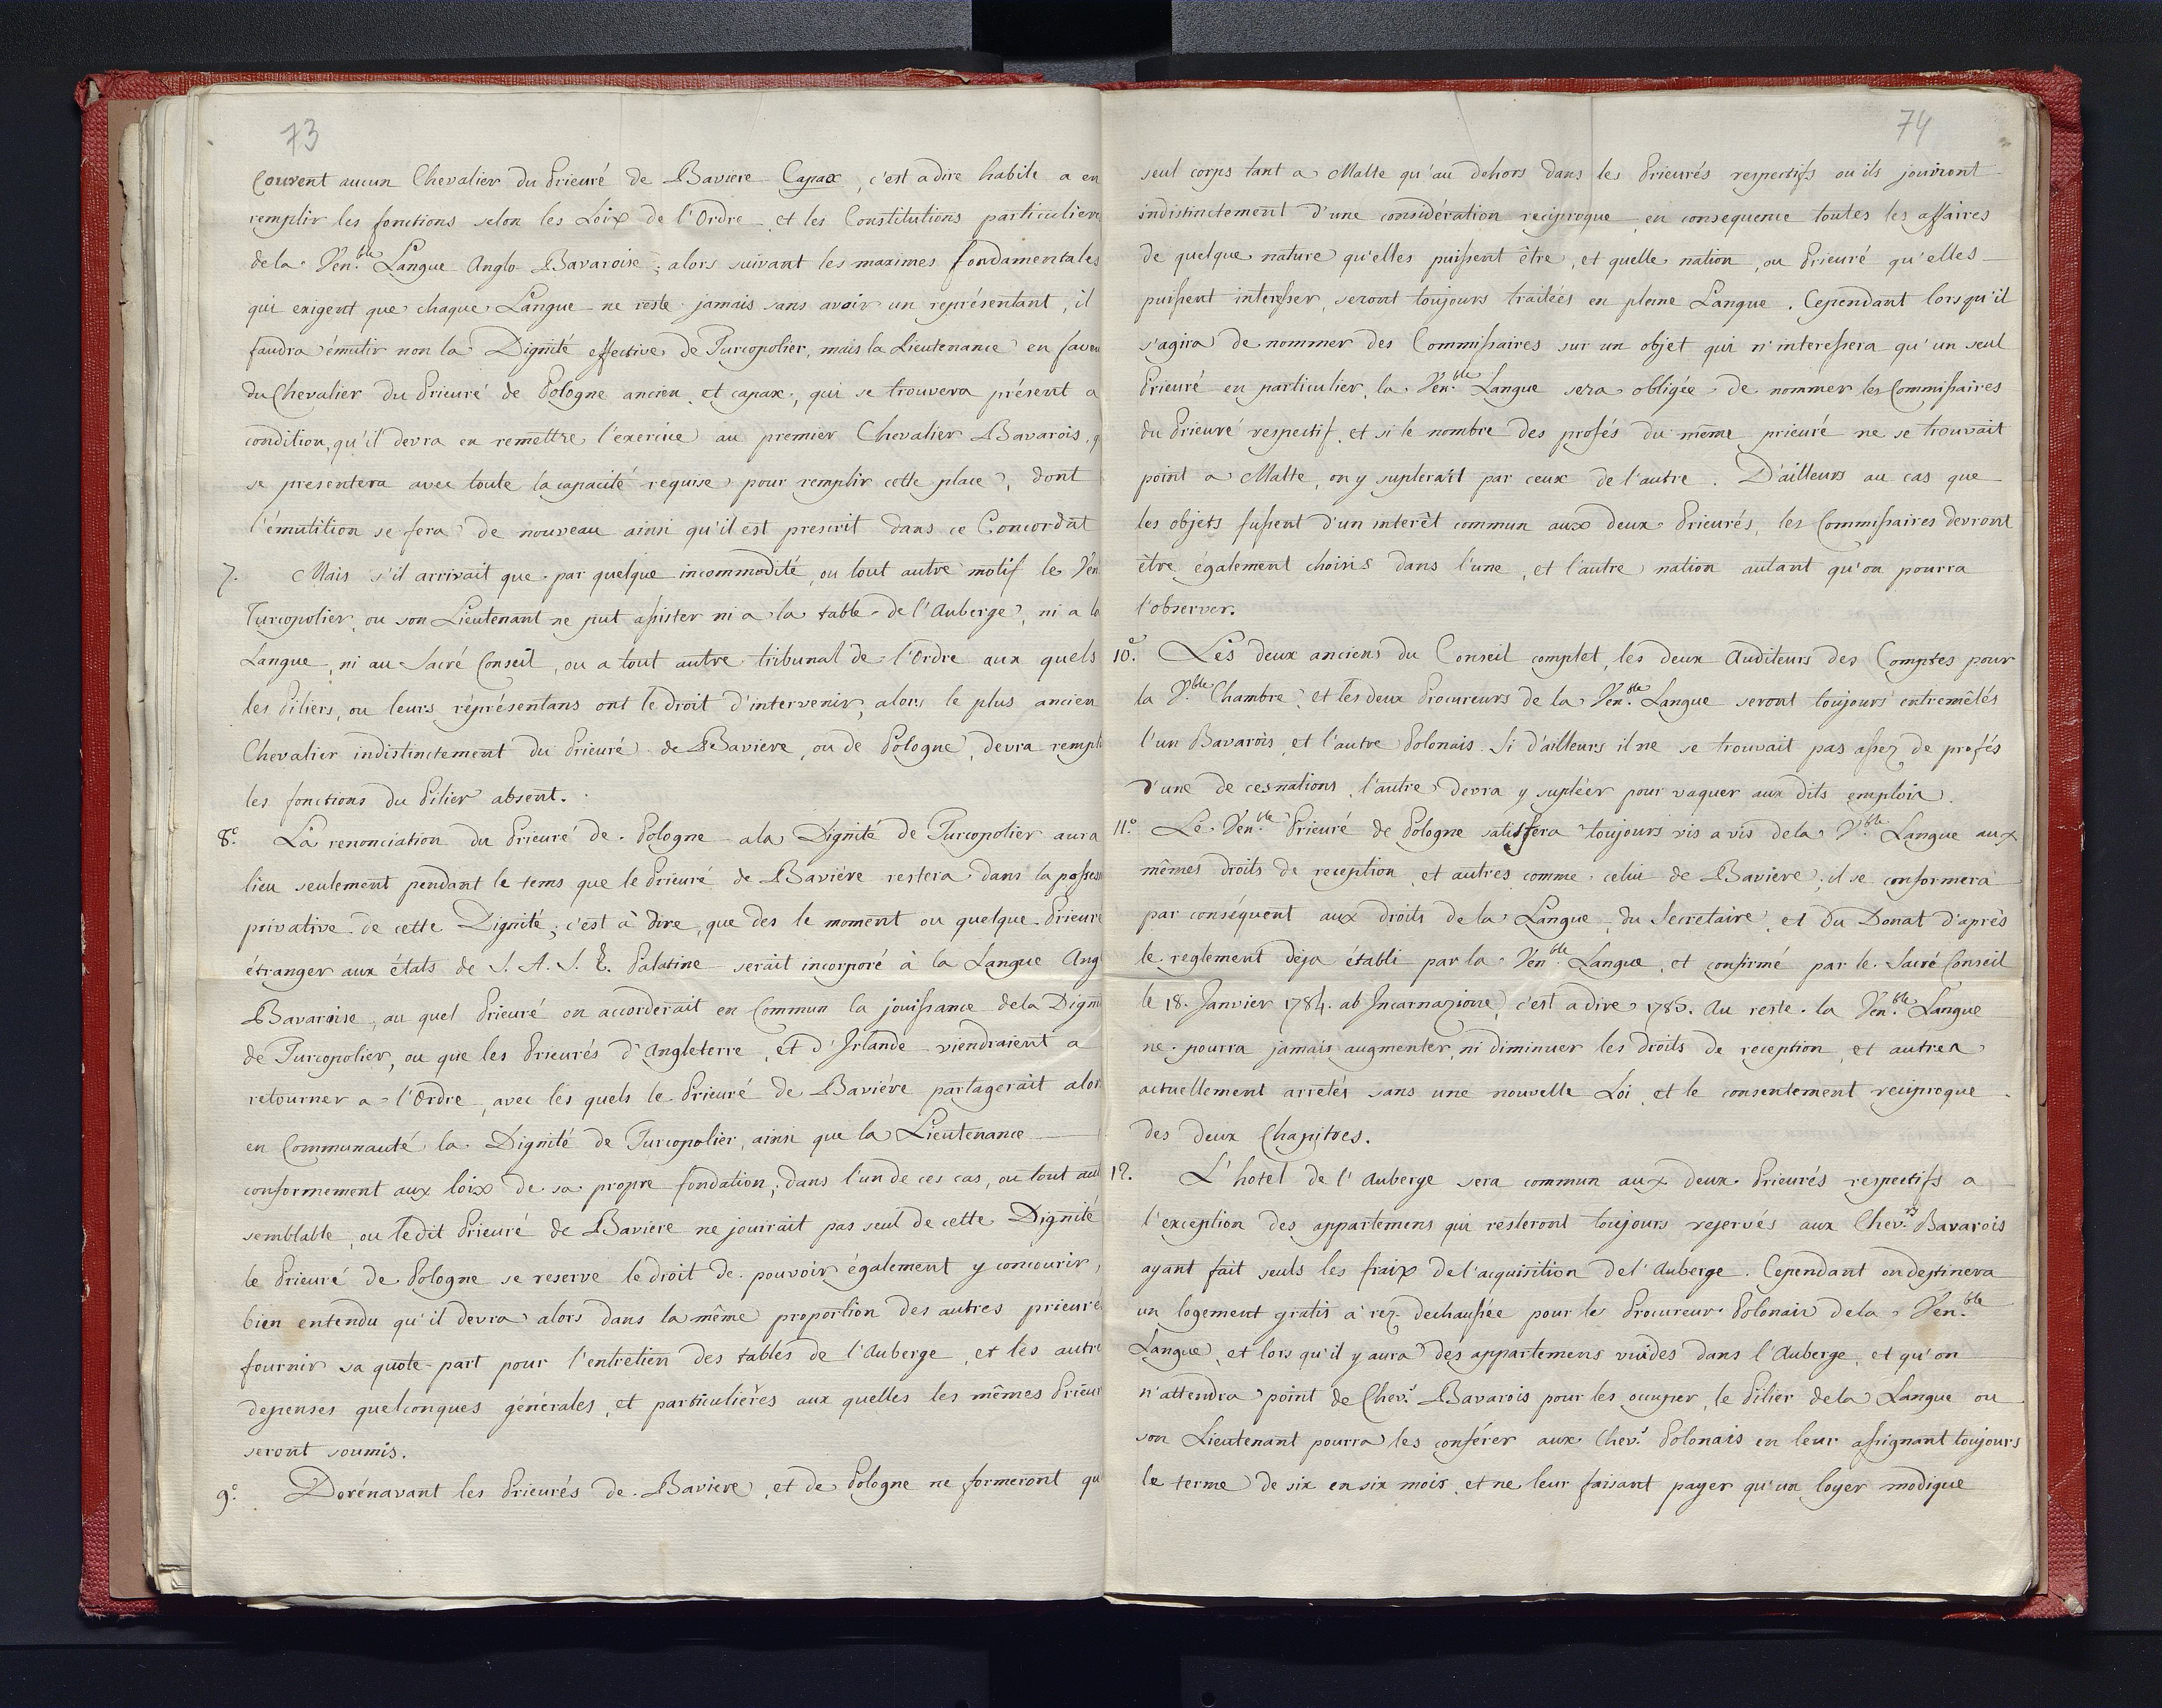 73
Couvent aucun Chevalier du Prieuré de Baviere Capax, c'est a dire habile a en
remplir les fonctions selon les Loix de l'Ordre, et les Constitutions particuliere
de la Ven.ble Langue Anglo-Bavaroise; alors suivant les maximes fondamentales
qui exigent que chaque Langue ne reste jamais sans avoir un représentant, il
faudra émutir non la Dignité effective de Turcopolier, mais la Lieutenance en faveu
du Chevalier du Prieuré de Pologne ancien, et capax, qui se trouvera présent a
condition, qu'il devra en remettre l'exercice au premier Chevalier Bavarois, q
se presentera avec toute la capacité requise pour remplir cette place, dont
l'émutition se fera de nouveau ainsi qu'il est prescrit dans ce Concordat
7. Mais s'il arrivait que par quelque incommodité, ou tout autre motif le Ven
Turcopolier, ou son Lieutenant ne put assister ni a la table de l'Auberge, ni a la
Langue, ni au Sacré Conseil, ou a tout autre tribunal de l'Ordre aux quels
les Piliers, ou leurs réprésentans ont le droit d'intervenir, alors le plus ancien
Chevalier indistinctement du Prieuré de Baviere, ou de Pologne, devra rempli
les fonctions du Pilier absent.
8.º La renonciation du Prieuré de Pologne a la Dignité de Turcopolier aura
lieu seulement pendant le tems que le Prieuré de Baviére restera dans la possess
privative de cette Dignité; c'est à dire, que des le moment ou quelque Prieuré
étranger aux états de S. A. S. E. Palatine serait incorporé à la Langue Ang
Bavaroise, au quel Prieuré on accorderait en Commun la jouissance de la Digni
de Turcopolier, ou que les Prieurés d'Angleterre, et d'Irlande viendraient a
retourner a l'Ordre, avec les quels le Prieuré de Baviére partagerait alor
en Communauté la Dignité de Turcopolier, ainsi que la Lieutenance
conformement aux loix de sa propre fondation; dans l'un de ces cas, ou tout aut
semblable, ou ledit Prieuré de Baviere ne jouirait pas seul de cette Dignité
le Prieuré de Pologne se reserve le droit de pouvoir également y concourir,
bien entendu qu'il devra alors dans la même proportion des autres prieuré
fournir sa quote-part pour l'entretien des tables de l'Auberge, et les autre
depenses quelconques générales, et particulières aux quelles les mêmes Prieur
seront soumis.
9.º Dorénavant les Prieurés de Baviere, et de Pologne ne formeront qu
74
seul corps tant a Malte qu'au dehors dans les Prieurés respectifs ou ils jouiront
indistinctement d'une considération reciproque, en consequence toutes les affaires
de quelque nature qu'elles puissent être, et quelle nation, ou Prieuré qu'elles
puissent interesser, seront toujours traitées en pleine Langue. Cependant lorsqu'il
s'agira de nommer des Commissaires sur un objet qui n'interessera qu'un seul
Prieuré en particulier, la Ven.ble Langue sera obligée de nommer les Commissaires
du Prieuré respectif, et si le nombre des profés du même prieuré ne se trouvait
point a Malte, on y supleraït par ceux de l'autre. D'ailleurs au cas que
les objets fussent d'un interêt commun aux deux Prieurés, les Commissaires devront
être également choisis dans l'une, et l'autre nation autant qu'on pourra
l'observer.
10.º Les deux anciens du Conseil complet, les deux Auditeurs des Comptes pour
la V.ble Chambre, et les deux Procureurs de la Ven.ble Langue seront toujours entremêlés
l'un Bavarois, et l'autre Polonais. Si d'ailleurs il ne se trouvait pas assez de profés
d'une de ces nations, l'autre devra y supléer pour vaquer aux dits emplois.
11.º Le Ven.ble Prieuré de Pologne satisfera toujours vis a vis de la V.ble Langue aux
mêmes droits de reception, et autres comme celui de Baviere; il se conformera
par conséquent aux droits de la Langue, du Secretaire, et du Donat d'après
le reglement déja établi par la Ven.ble Langue, et confirmé par le Sacré Conseil
le 18. Janvier 1784. ab Incarnazione, c'est a dire 1785. Au reste la Ven.ble Langue
ne pourra jamais augmenter, ni diminuer les droits de reception, et autres
actuellement arretés sans une nouvelle Loi, et le consentement reciproque
des deux Chapitres.
12. L'hotel de l'Auberge sera commun aux deux Prieurés respectifs a
l'exception des appartemens qui resteront toujours reservés aux Chev.rs Bavarois
ayant fait seuls les fraix de l'acquisition de l'Auberge. Cependant on destinera
un logement gratis à rez-dechaussée pour le Procureur Polonais de la Ven.ble
Langue, et lors qu'il y aura des appartemens vuides dans l'Auberge, et qu'on
n'attendra point de Chev.s Bavarois pour les occuper, le Pilier de la Langue ou
son Lieutenant pourra les conférer aux Chev.s Polonais en leur assignant toujours
le terme de six en six mois, et ne leur faisant payer qu'un loyer modique